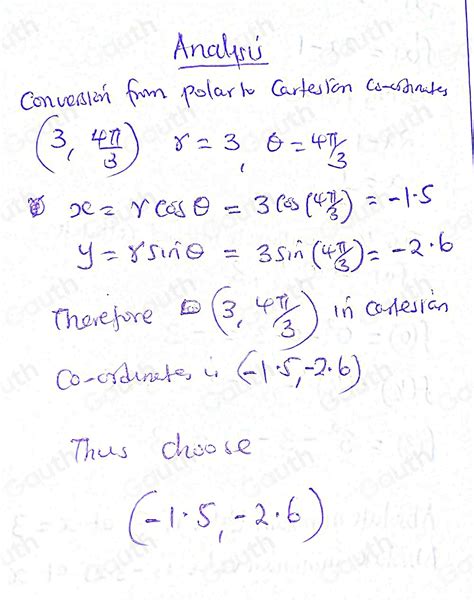 Analysis
Conversion from polar to Cartesian co-ordinates
(3, 4π/3) r = 3, θ = 4π/3
x = r cos θ = 3 cos (4π/3) = -1.5
y = r sin θ = 3 sin (4π/3) = -2.6
Therefore (3, 4π/3) in cartesian
co-ordinates is (-1.5, -2.6)
Thus choose
(-1.5, -2.6)